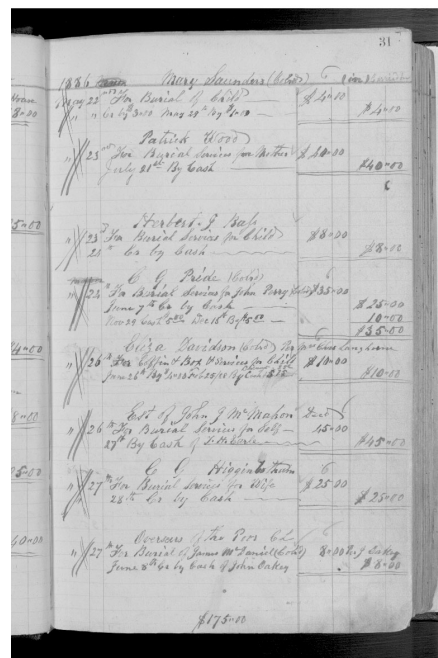 31
1886 Mary Saunders (Col'd)
May 22nd For Burial of Child $4-10
" " Cr by 3-00 May 28th By $1-10 $4-10
Patrick Wood
" 23rd For Burial Services for Mother $40-00
July 21st By Cash $40-00
Herbert J. Bass
" 23d For Burial Services for Child $8-00
28th Cr by Cash $8-00
C G Pride (Col'd)
" 24th For Burial Services for John Perry (Col'd) $35-00
June 7th Cr by Cash $25-00
Nov 29 Cash 5.00 Dec 16th By $5.00 10-00
$35-00
Eliza Davidson (Col'd)
" 26th For Coffin & Box & Services for Child $10-00
$10-00
Est of John J McMahon Decd
" 26th For Burial Services for Self 45-00
27th By Cash of $45-00
C G Higginbotham
" 27th For Burial Services for Wife $25-00
28th Cr by Cash $25-00
Overseers of the Poor
" 27th For Burial of James McDaniel (Col'd) 8-00
June 8th Cr by Cash of John Oakey $8-00
$175-00
8-00
5-00
4-00
8-00
5-00
60-00